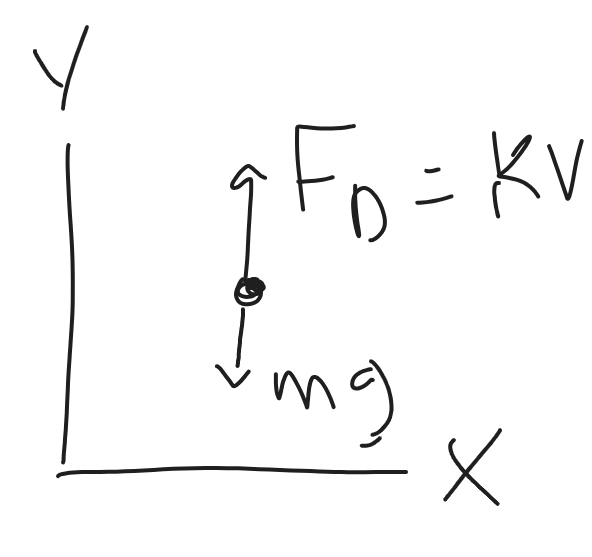 Y
F_D = KV
mg
X